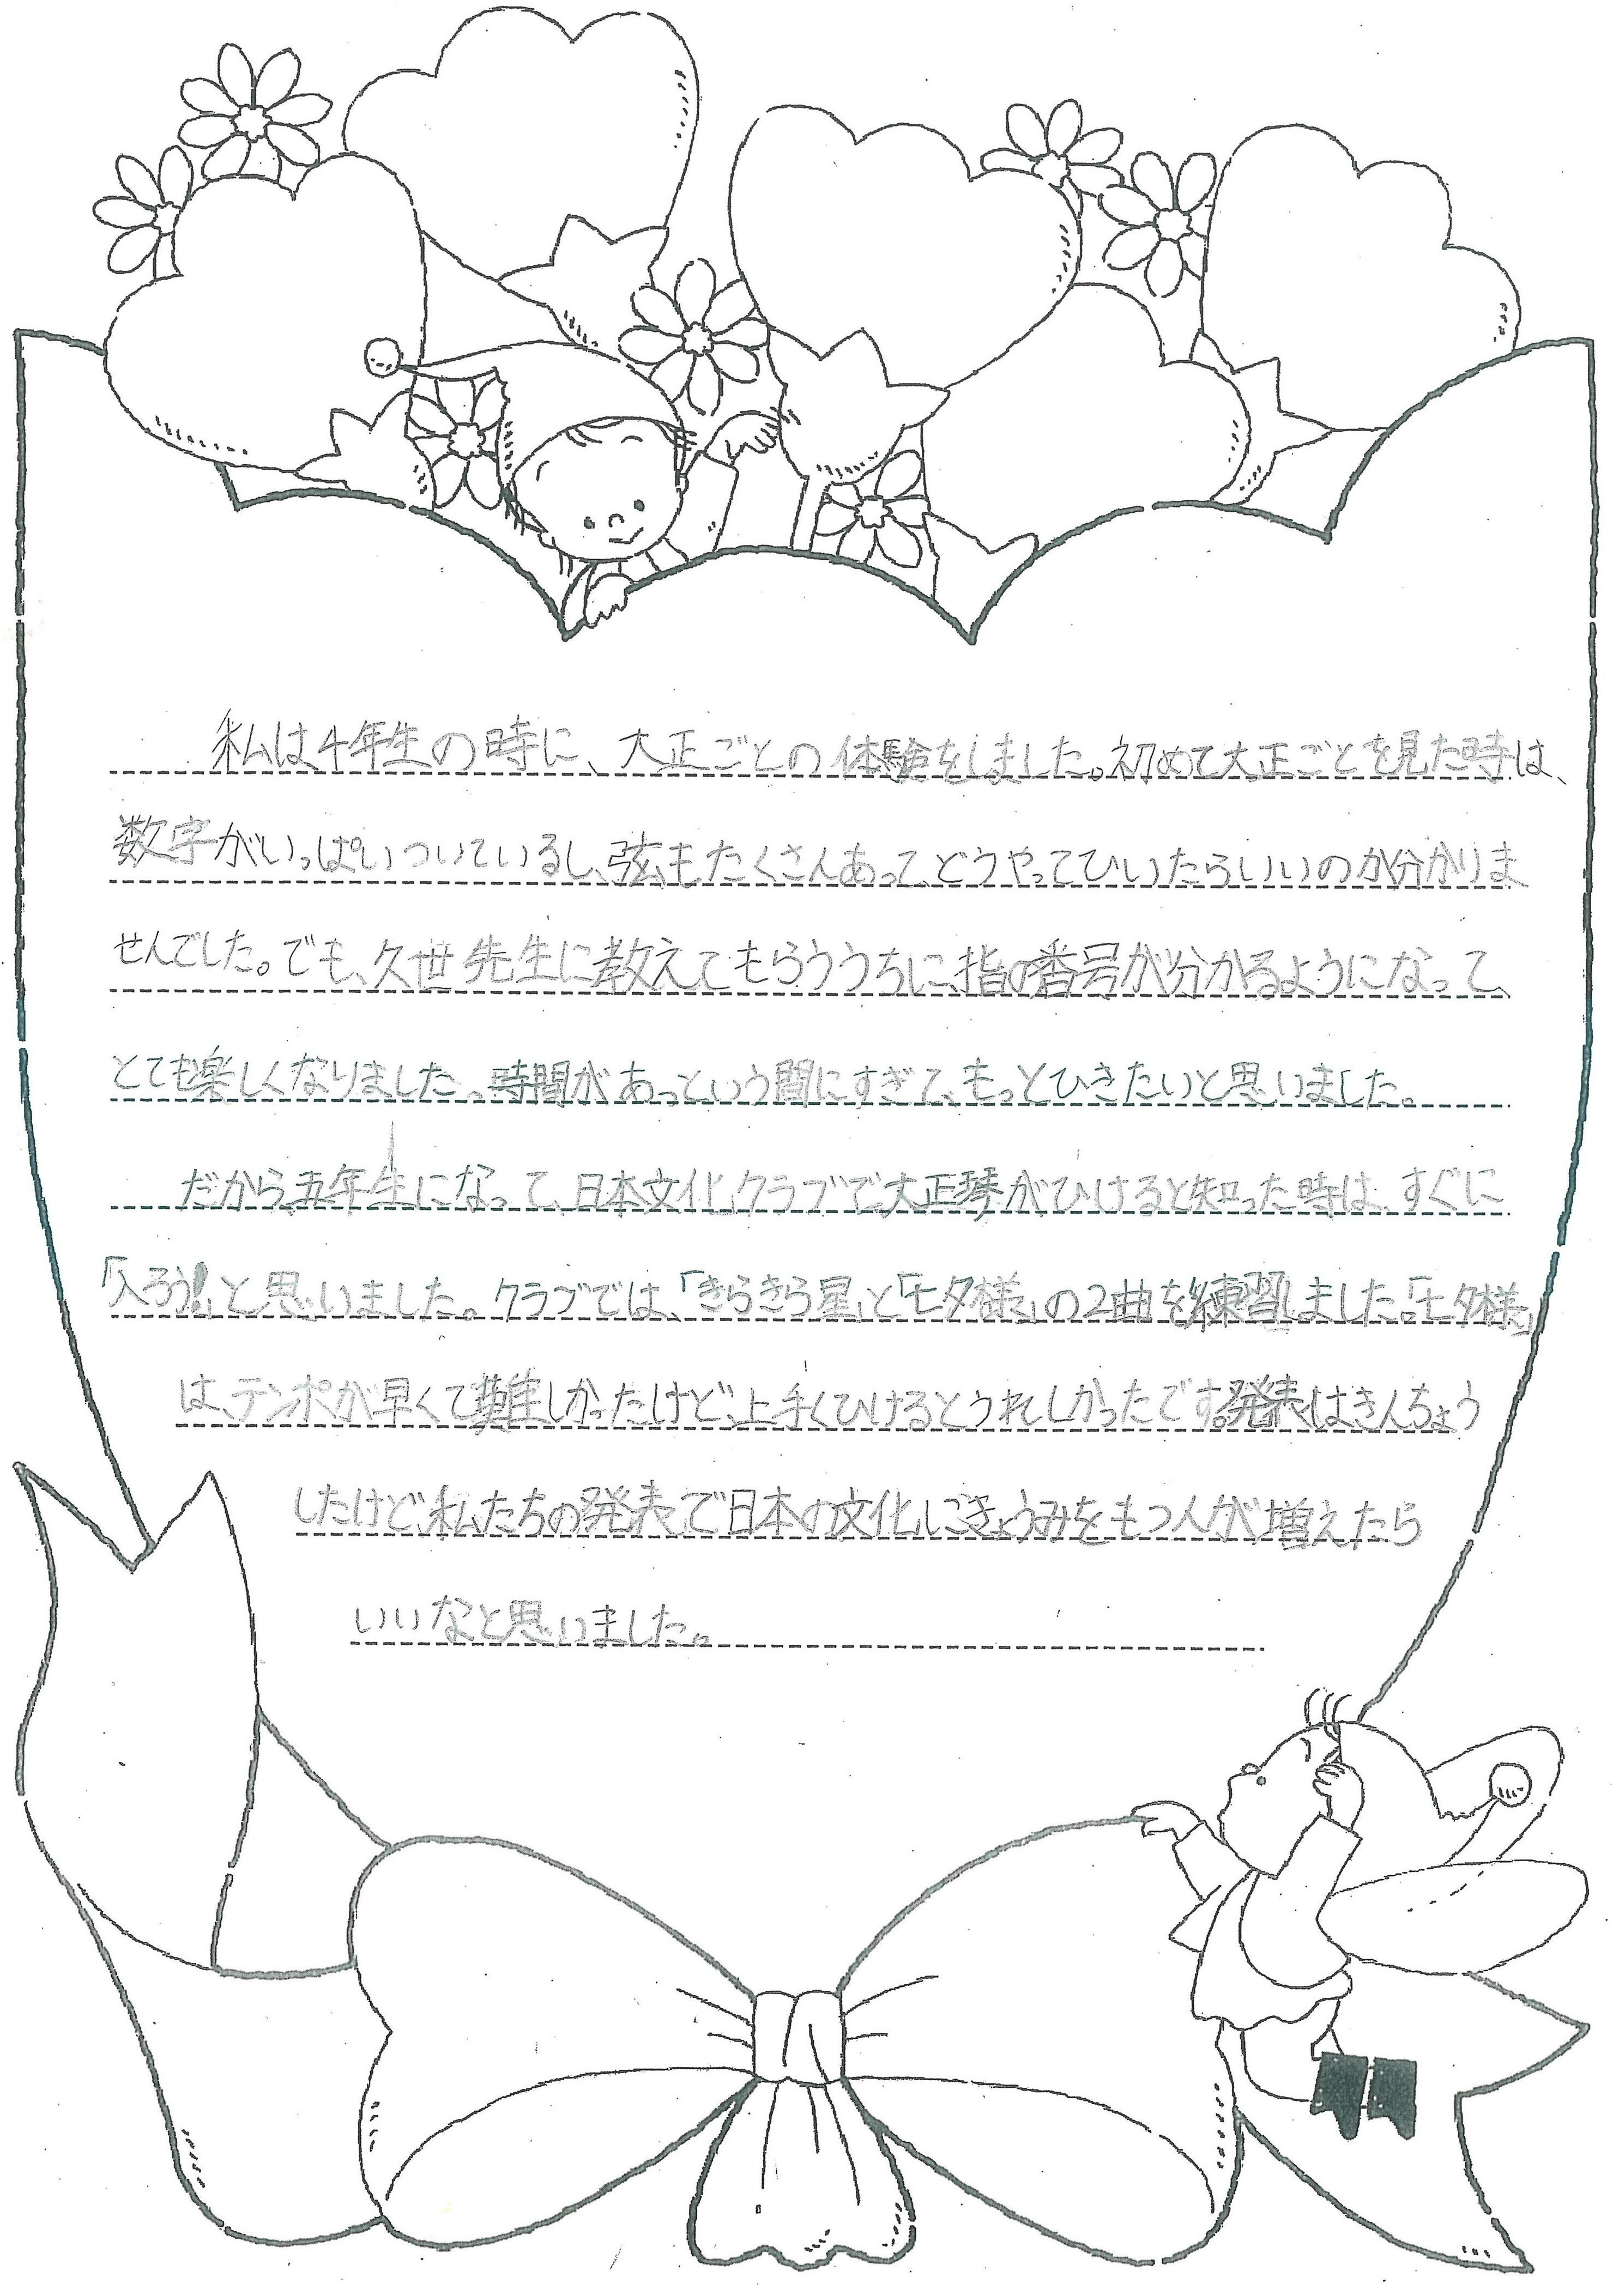 私は4年生の時に、大正ごとの体験をしました。初めて大正ごとを見た時は、
数字がいっぱいついているし、弦もたくさんあって、どうやってひいたらいいのか分かりま
せんでした。でも、久世先生に教えてもらううちに、指の番号が分かるようになって、
とても楽しくなりました。時間があっという間にすぎて、もっとひきたいと思いました。
だから、五年生になって、日本文化クラブで大正琴がひけると知った時は、すぐに
「入ろう!」と思いました。クラブでは、「きらきら星」と「七夕様」の2曲を練習しました。「七夕様」
は、テンポが早くて難しかったけど、上手くひけるとうれしかったです。発表はきんちょう
したけど、私たちの発表で日本の文化にきょうみをもつ人が増えたら
いいなと思いました。